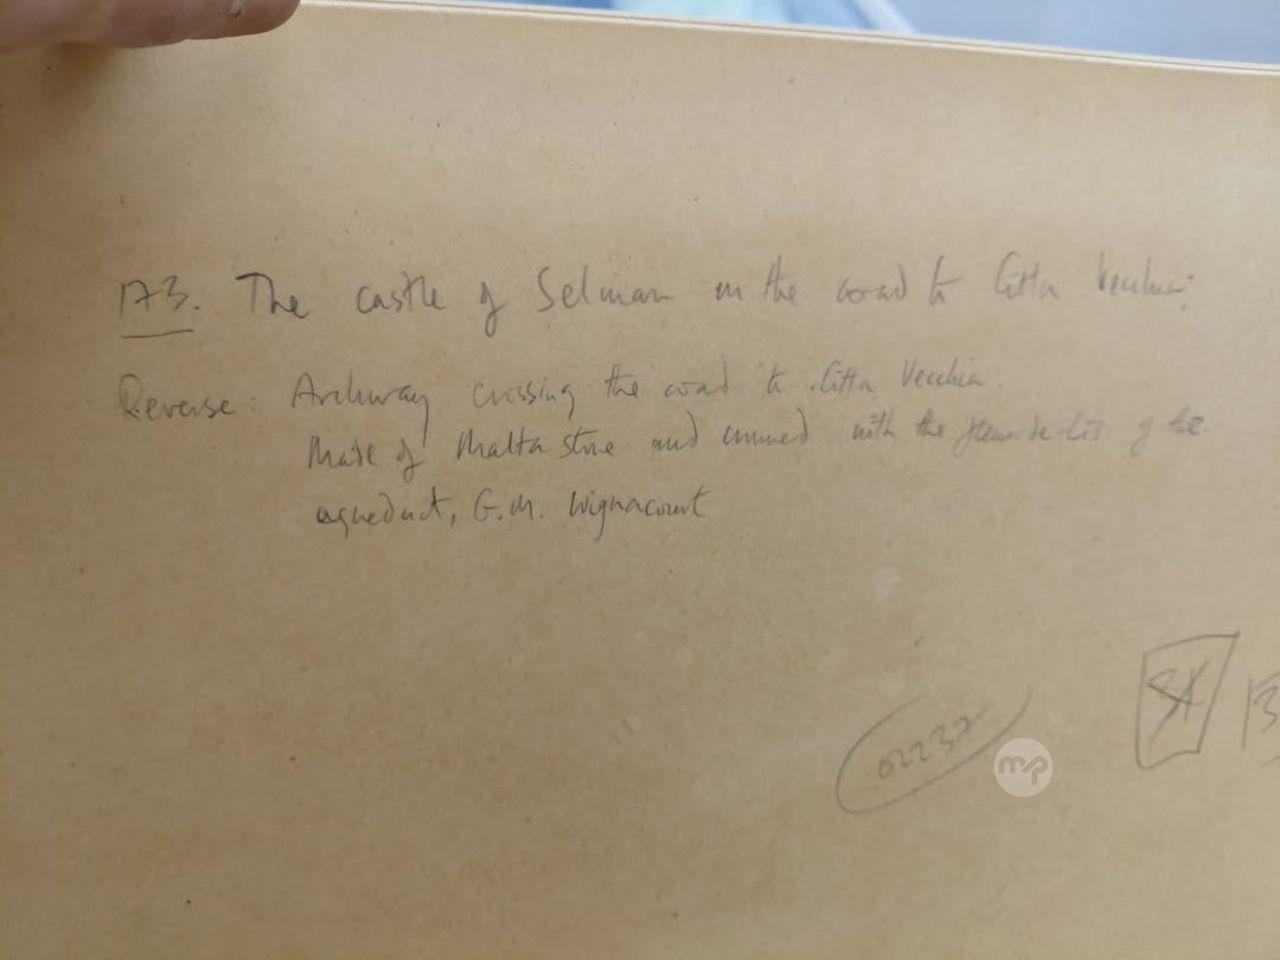 173. The castle of Selman on the road to Citta Vecchia.
Reverse: Archway crossing the road to Citta Vecchia.
Made of Malta stone and crowned with the fleur-de-lis of the
aqueduct, G.M. Wignacourt
02237
mp